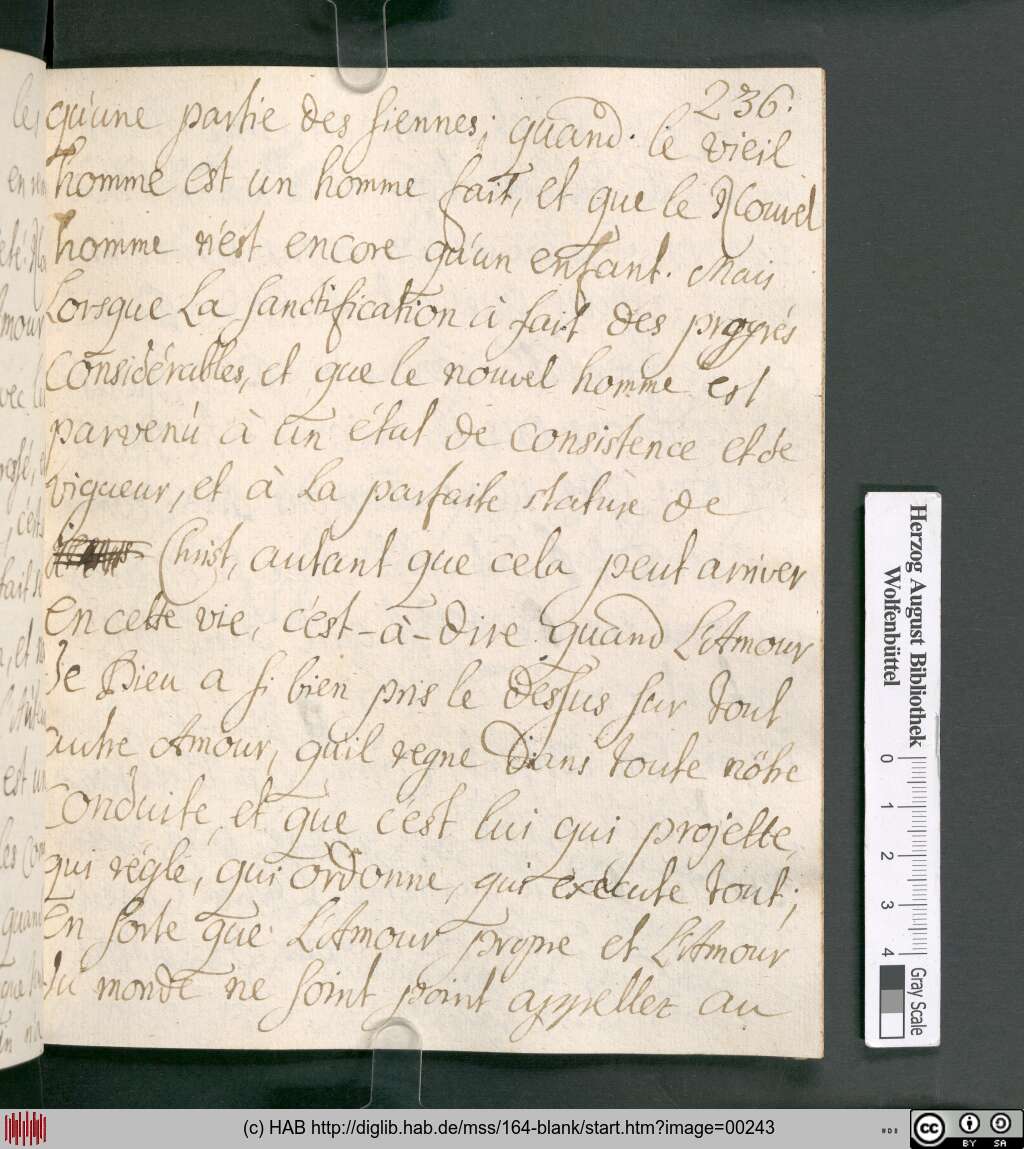 236.
qu'une partie des siennes; quand le vieil
homme est un homme fait, et que le Nouvel
homme n'est encore qu'un enfant. Mais
Lorsque La sanctification à fait des progrés
Considérables, et que le nouvel homme est
parvenù à un état de consistence et de
vigueur, et à La parfaite stature de
Christ, autant que cela peut arriver
En cette vie, c'est-à-dire quand L'Amour
De Dieu a si bien pris le dessus sur tout
autre Amour, qu'il regne Dans toute nôtre
Conduite, et que c'est lui qui projette,
qui régle, qui ordonne, qui exécute tout;
En sorte que L'Amour propre et L'Amour
du monde ne soint point appellez au
Herzog August Bibliothek
Wolfenbüttel
0 1 2 3 4
Gray Scale
(c) HAB http://diglib.hab.de/mss/164-blank/start.htm?image=00243
cc BY SA